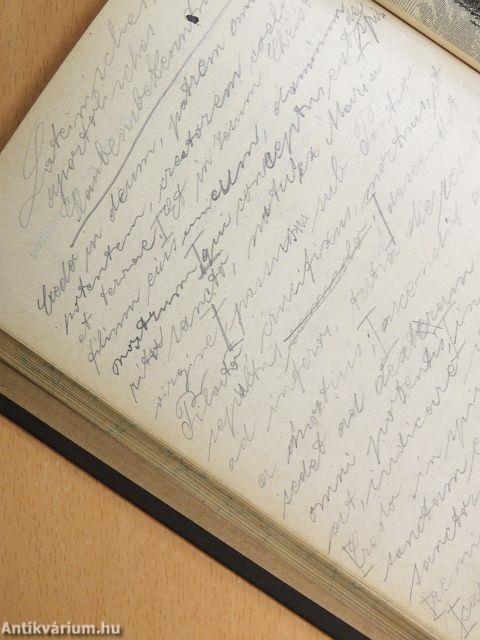 Lateinisches
apostolisches
Glaubensbekenntnis
Credo in deum, patrem omni
potentem, creatorem coel
et terrae I Et in Jesum Christ
filium eius unicum, dominum
nostrum I qui conceptus est de
Spiri
ritu sancto, natus ex Maria
virgine, I passus sub Pontio
Pilato, crucifixus, mortuus, et
sepultus I descendit
ad inferos, tertia die resur
a mortuis, I ascendit a
sedet ad dexteram
omni potentis, in
est, iudicare
I Credo in spir
sanctam e
sanctor
I remi
I car
Antikvárium.hu